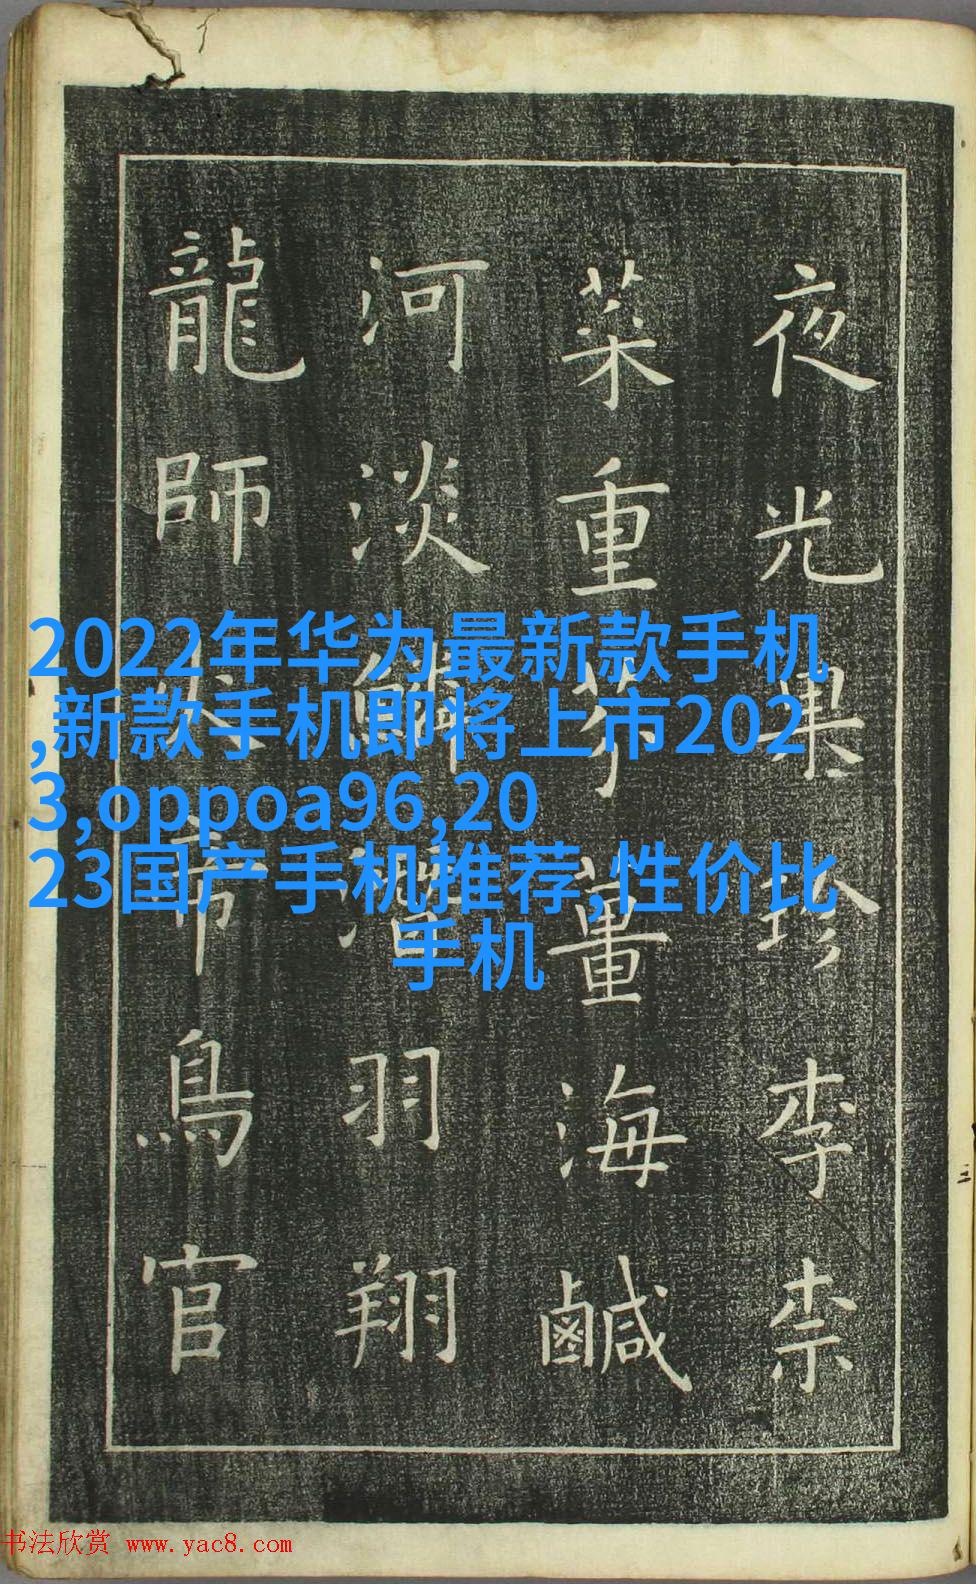 夜光果珍李柰
菜重芥薑海鹹
河淡鱗潛羽翔
龍師火帝鳥官
2022年华为最新款手机
,新款手机即将上市202
3,oppoa96,20
23国产手机推荐,性价比
手机
书法欣赏 www.yac8.com